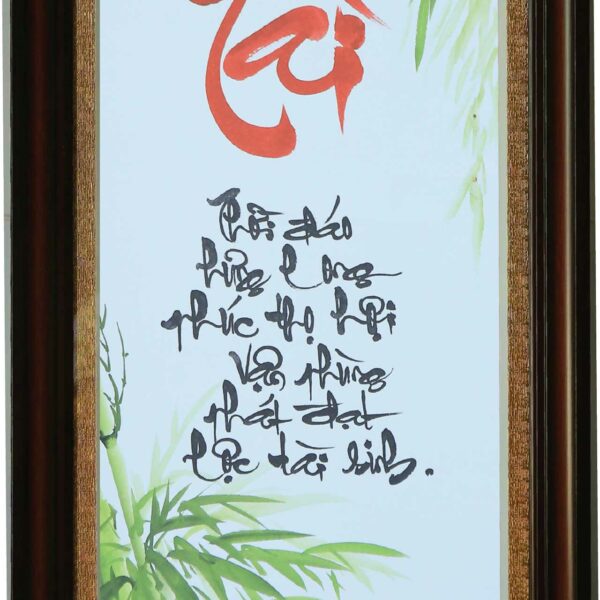 Tài
Thời đáo
hưng long
phúc thọ hội
vận phùng
phát đạt
lộc tài sinh.